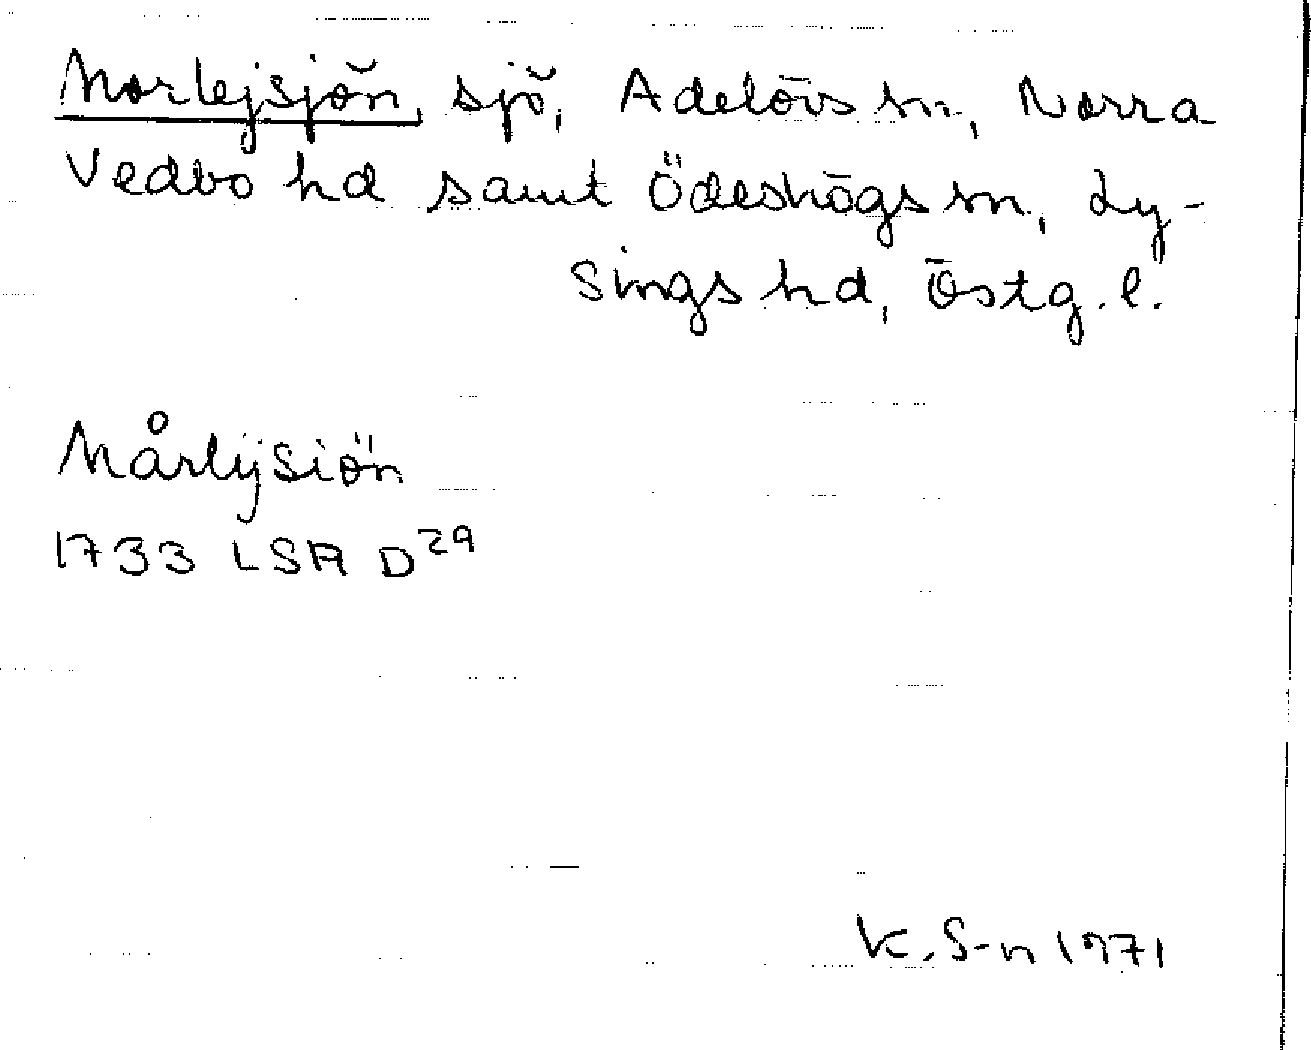 Morlejsjön, sjö, Adelövs sn, Norra
Vedbo hd samt Ödeshögs sn, Ly-
sings hd, Östg. l.
Mårlijsiön
1733 LSA D29
K. S-n 1971